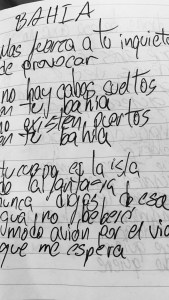 BAHIA
mas fuerza a tu inquieto
de provocar
no hay cabos sueltos
en tu bahia
no existen puertos
en tu bahia
tu cuerpo es la isla
de la fantasia
nunca digas de esa
agua no beberé
humodo avión por el vic
que me espera